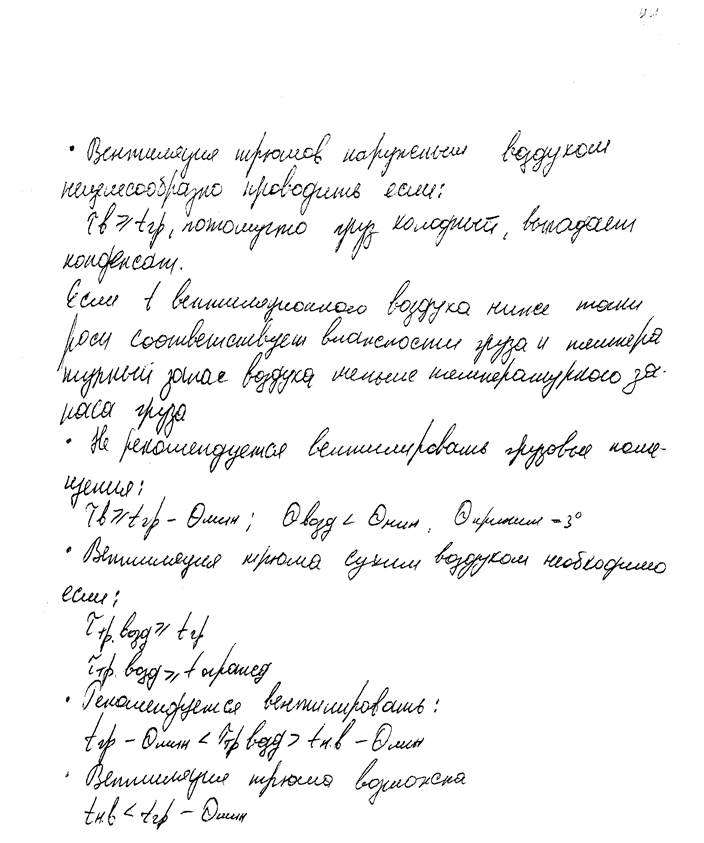 • Вентиляция трюмов наружным воздухом
нецелесообразно проводить если:
τв ≥ tгр, потомучто груз холодный, выпадает
конденсат.
Если t вентиляционного воздуха ниже точки
росы соответствует влажности груза и темпера
турный запас воздуха меньше температурного за-
паса груза
• Не рекомендуется вентилировать грузовые поме-
щения:
τв ≥ tгр − Θмин; Θвозд < Θмин, Θ = 3°
• Вентиляция трюма сухим воздухом необходимо
если:
τтр. возд ≥ tгр
τтр. возд ≥ t огражд
• Рекомендуется вентилировать:
tгр − Θмин < τтр возд > tн.в − Θмин
• Вентиляция трюма возможна
tн.в < tгр − Θмин